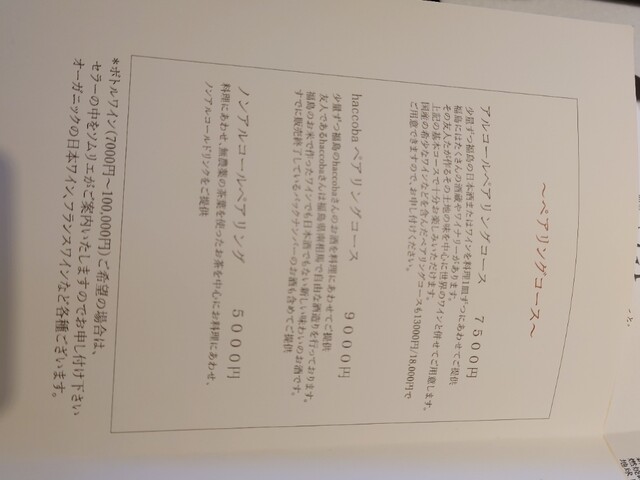 ～ペアリングコース～
アルコールペアリングコース 7500円
少量ずつ福島の日本酒またはワインを料理1皿ずつにあわせてご提供
福島にはたくさんの酒蔵やワイナリーがあります。
その友人たが作るその土地の味を中心に世界のワインと併せてご用意します。
上記の基本コースで十分お楽しみいただけます。
国産の希少なワインなどを含んだペアリングコースも13000円/18,000円で
ご用意できますので、お申し付けください。
haccoba ペアリングコース 9000円
少量ずつ福島のhaccobaさんのお酒を料理にあわせてご提供
友人であるhaccobaさんは福島県南相馬で自由な酒造りを行っております。
福島のお米で作ったワインでも日本酒でもない新しい味わいのお酒です。
すでに販売終了しているバックナンバーのお酒も含めてご提供
ノンアルコールペアリング 5000円
料理にあわせ、無農薬の茶葉を使ったお茶を中心にお料理にあわせ、
ノンアルコールドリンクをご提供
*ボトルワイン(7000円～100,000円)ご希望の場合は、
セラーの中をソムリエがご案内いたしますのでお申し付け下さい
オーガニックの日本ワイン、フランスワインなど各種ございます。